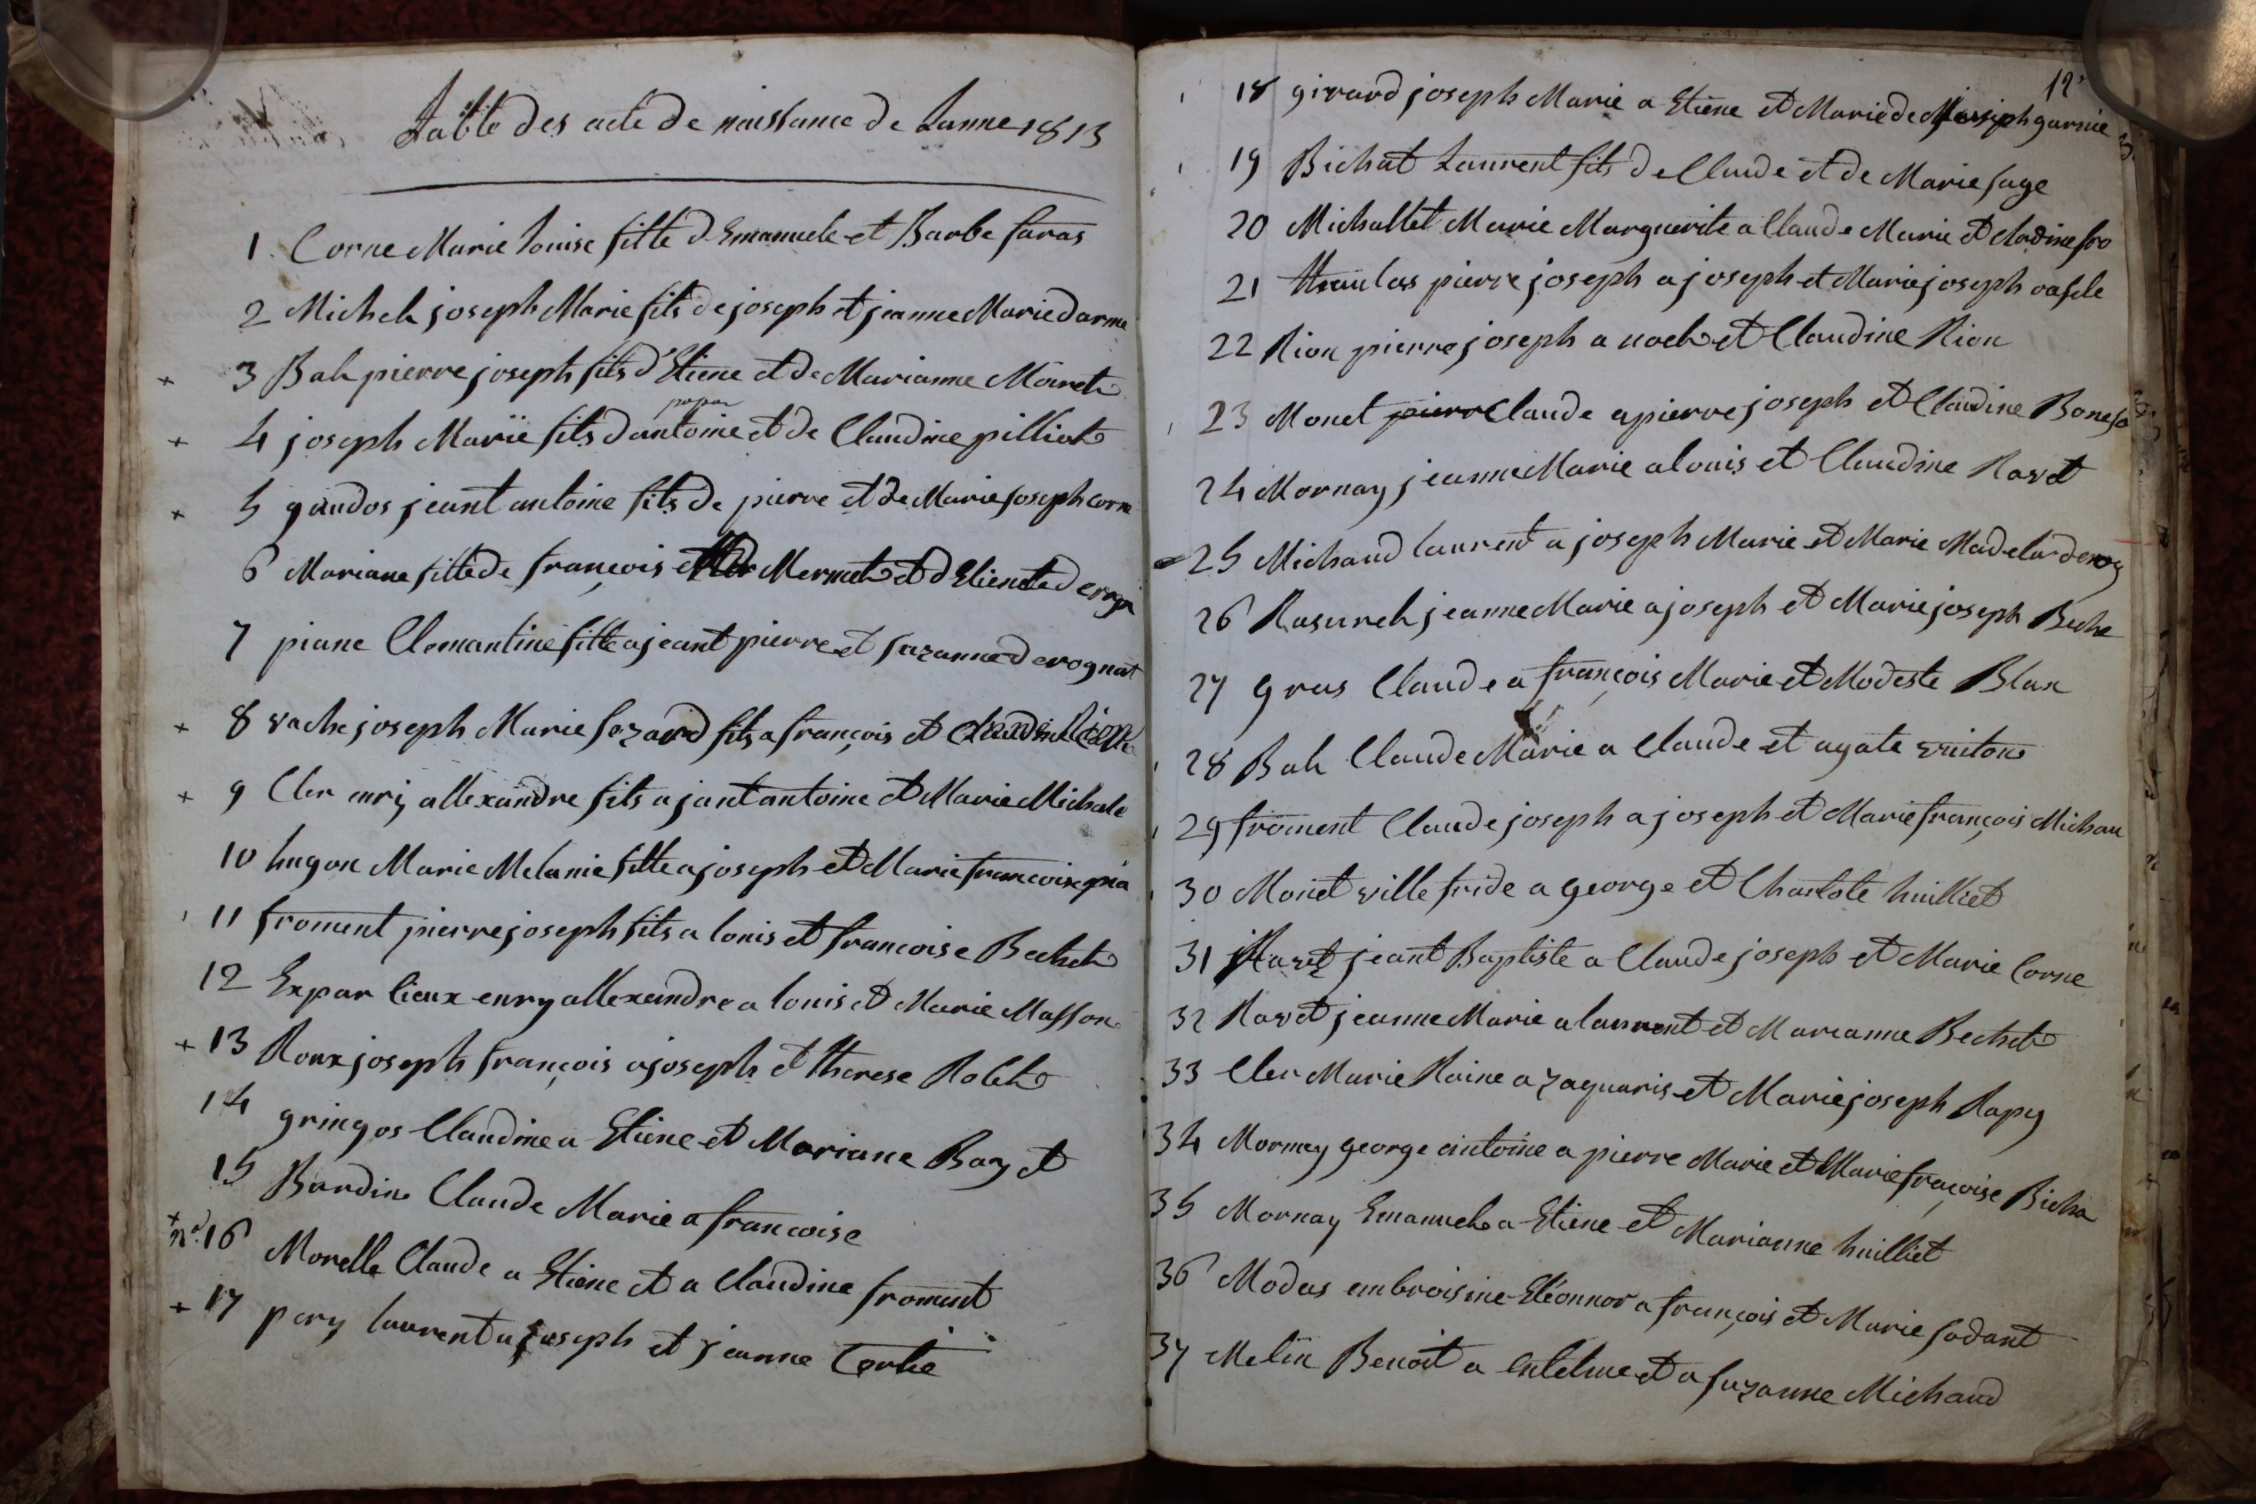 Table des acte de naissance de Lanne 1813
1 Corne Marie Louise fille d Emanuele et Barbe faras
2 Michel joseph Marie fils de joseph et jeanne Marie darme
3 Bal pierre joseph fils d'Etiene et de Marianne Moiret
papon
4 joseph Marie fils dantoine et de Claudine pilliot
5 gaudos jeant antoine fils de pierre et de Marie joseph corn
6 Mariane fille de françois Mermet et d Etienete
7 piane Clemantine fille a jeant pierre et suzanne derognat
8 vache joseph Marie fils a françois et
9 Cler enrij allexandre fils a jant antoine et Marie Michale
10 hugon Marie Melanie fille a joseph et Marie francoise
11 froment pierre joseph fils a louis et francoise Bechet
12 Expar lieux enry allexandre a louis et Marie Masson
13 Roux joseph françois a joseph et therese Rolet
14 gringos Claudine a Etiene et Mariane Bay et
15 Bardin Claude Marie a francoise
n° 16 Morelle Claude a Etiene et a Claudine froment
17 pery laurent a joseph et jeanne
12
18 girard joseph Marie a Etiene et Marie joseph garnie
19 Bichat Laurent fils de Claude et de Marie sage
20 Michallet Marie Marguerite a Claude Marie et cladine fro
21 pierre joseph a joseph et Marie joseph
22 Rion pierre joseph a noel et Claudine Rion
23 Monet pierre Claude a pierre joseph et Claudine
24 Mornay jeanne Marie a louis et Claudine Ravet
25 Michaud laurent a joseph Marie et Marie Madela
26 Rasurel jeanne Marie a joseph et Marie joseph Beche
27 gras Claude a françois Marie et Modeste Blan
28 Bal Claude Marie a Claude et agate
29 froment Claude joseph a joseph et Marie françois Michau
30 Monet ville fride a george et Charlote huilliet
31 Ravet jeant Baptiste a Claude joseph et Marie Corne
32 Ravet jeanne Marie a laurent et Marianne Bechet
33 Cler Marie Raine a zaquaris et Marie joseph Rapy
34 Mornay george antoine a pierre Marie et Marie fraçoise Bicha
35 Mornay Emanuel a Etiene et Marianne huilliet
36 Modas embroisine Eléonnor a françois et Marie sodant
37 Melin Benoit a entelme et a suzanne Michaud